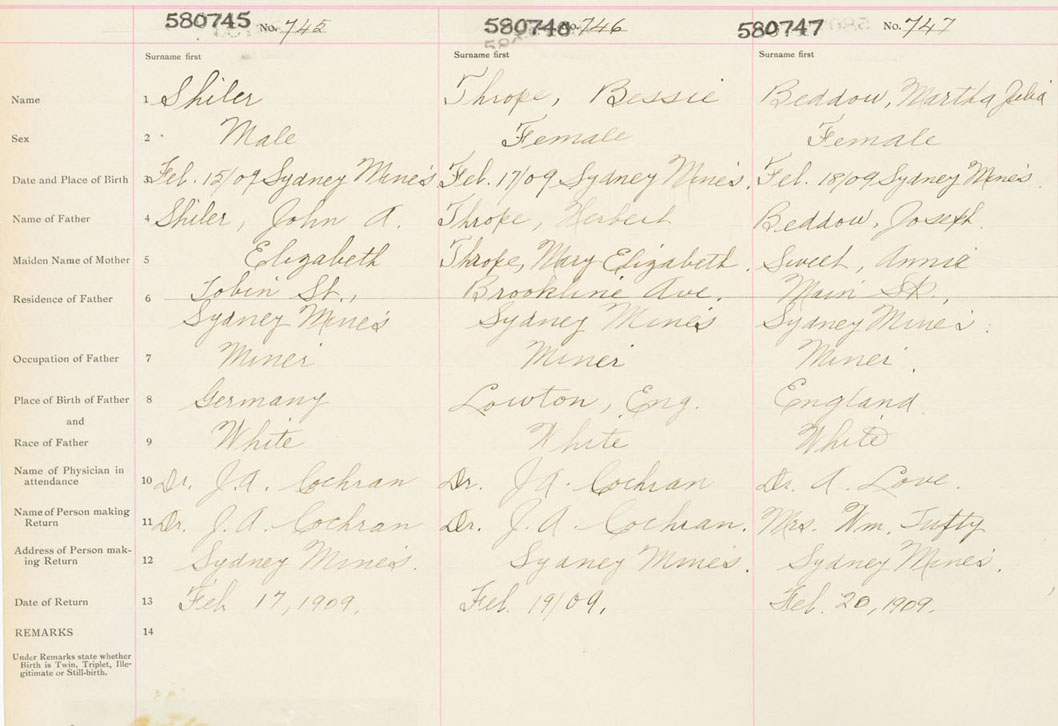 580745 No. 745 580746 No. 746 580747 No. 747
Surname first Surname first Surname first
Name 1 Shiler Thrope, Bessie Beddow, Martha Julia
Sex 2 Male Female Female
Date and Place of Birth 3 Feb. 15/09 Sydney Mines Feb. 17/09 Sydney Mines. Feb. 18/09 Sydney Mines.
Name of Father 4 Shiler, John A. Thrope, Herbert Beddow, Joseph.
Maiden Name of Mother 5 Elizabeth Thrope, Mary Elizabeth. Sweet, Annie
Residence of Father 6 Tobin St., Brookline Ave. Main St.,
Sydney Mines Sydney Mines Sydney Mines.
Occupation of Father 7 Miner Miner Miner.
Place of Birth of Father 8 Germany Lowton, Eng. England.
and
Race of Father 9 White White White
Name of Physician in
attendance 10 Dr. J.A. Cochran Dr. J.A. Cochran Dr. A. Love.
Name of Person making
Return 11 Dr. J.A. Cochran Dr. J.A. Cochran. Mrs. Wm. Tufty
Address of Person mak-
ing Return 12 Sydney Mines. Sydney Mines. Sydney Mines.
Date of Return 13 Feb. 17, 1909. Feb. 19/09. Feb. 20, 1909.
REMARKS 14
Under Remarks state whether
Birth is Twin, Triplet, Ille-
gitimate or Still-birth.